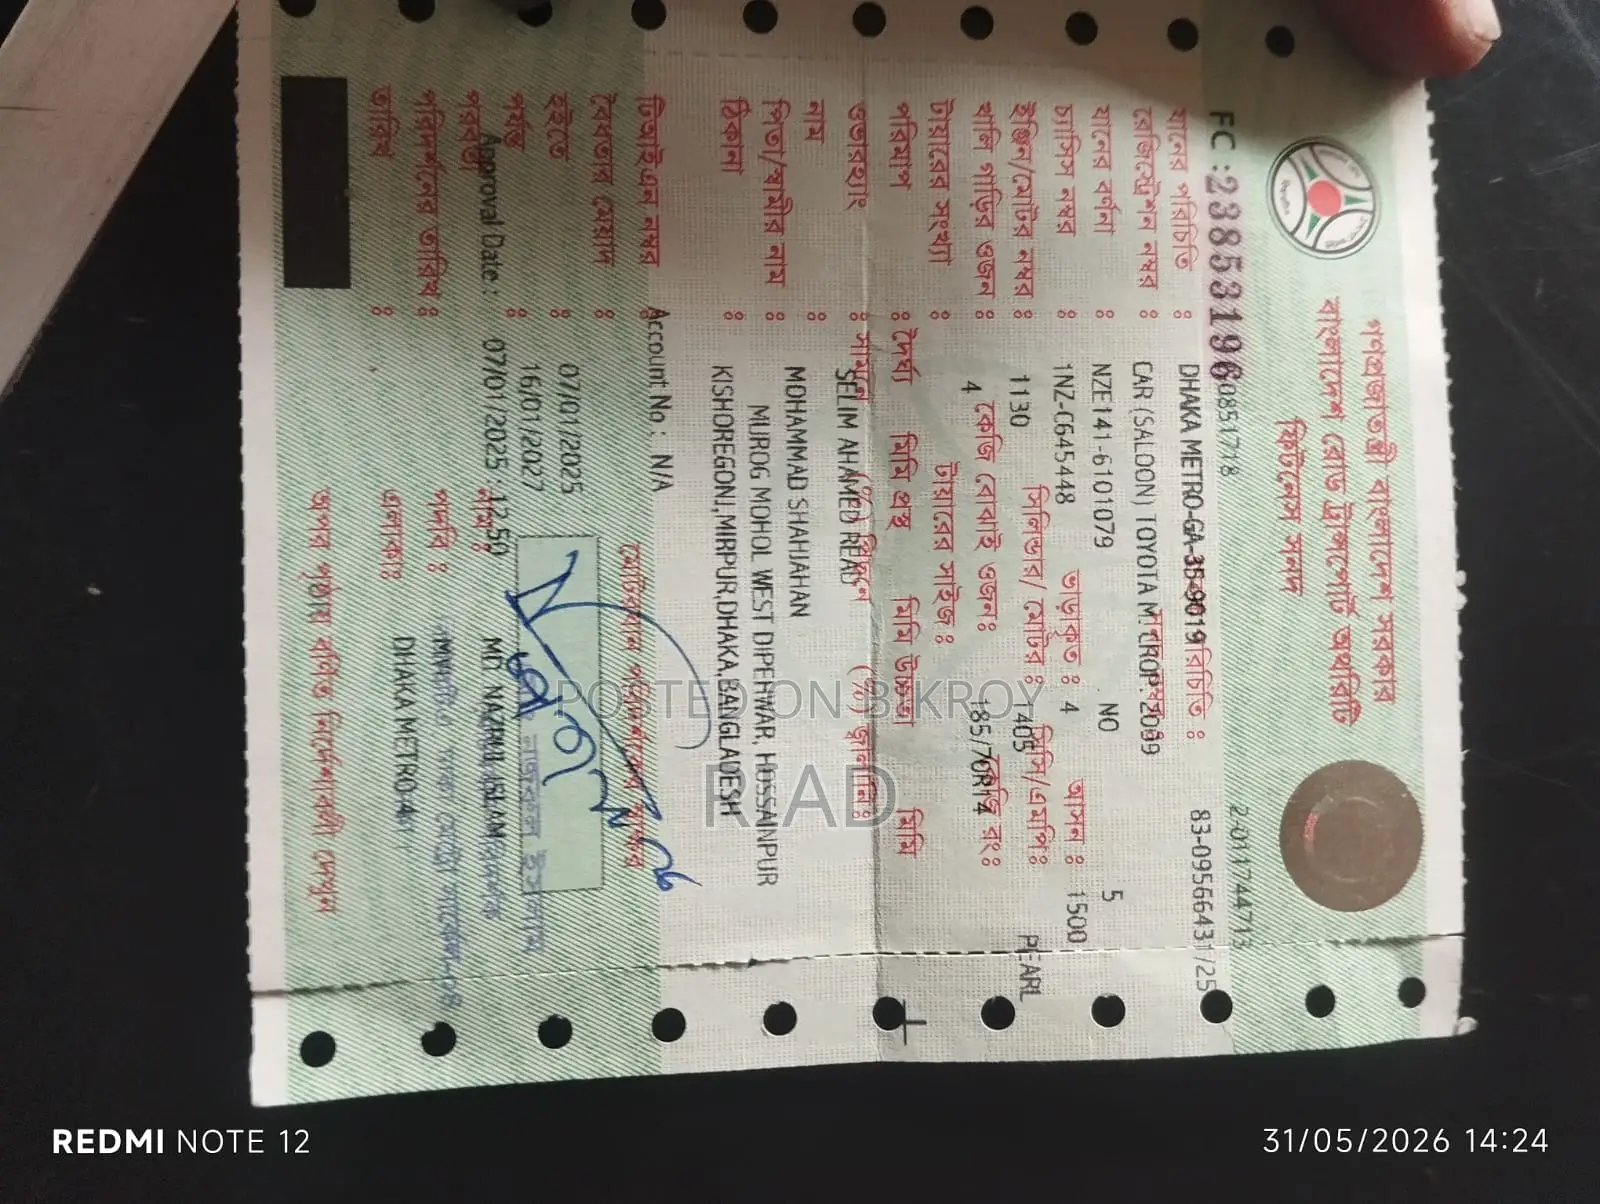 গণপ্রজাতন্ত্রী বাংলাদেশ সরকার
বাংলাদেশ রোড ট্রান্সপোর্ট অথরিটি
ফিটনেস সনদ
2-0117447713
FC : 23853196 0851718
83-09566431/25
যানের পরিচিতি :
রেজিস্ট্রেশন নম্বর : DHAKA METRO-GA-35-9019 পরিচিতি :
যানের বর্ণনা : CAR (SALOON) TOYOTA M.CROP. 2009
চ্যাসিস নম্বর : NZE141-6101079 NO 5
ইঞ্জিন/মোটর নম্বর : 1NZ-C645448 ভাড়াকৃত : 4 আসন : 1500
সিলিন্ডার/ মোটর : সিসি/এমপি: PEARL
খালি গাড়ির ওজন : 1130 কেজি বোঝাই ওজন: 1405
টায়ারের সংখ্যা : 4 টায়ারের সাইজ : 185/70R14
পরিমাপ : দৈর্ঘ্য মিমি প্রস্থ মিমি উচ্চতা মিমি
ওভারহ্যাং : সামনে (%) জ্বালানি:
নাম : SELIM AHAMED READ
পিতা/স্বামীর নাম : MOHAMMAD SHAHJAHAN
ঠিকানা : MUROG MOHOL WEST DIPEHWAR, HOSSAINPUR
KISHOREGONJ,MIRPUR,DHAKA,BANGLADESH
টিআইএন নম্বর : Account No : N/A
বৈধতার মেয়াদ :
হইতে : 07/01/2025
পর্যন্ত : 16/01/2027
মোটরযান পরিদর্শকের স্বাক্ষর
পরবর্তী
Approval Date : 07/01/2025 12:50
নাম : MD. NAZRUL ISLAM
পরিদর্শনের তারিখ :
পদবি :
তারিখ :
এলাকা : DHAKA METRO-4
অপর পৃষ্ঠায় বর্ণিত নির্দেশাবলী দেখুন
POSTED ON BIKROY
RIAD
REDMI NOTE 12
31/05/2026 14:24